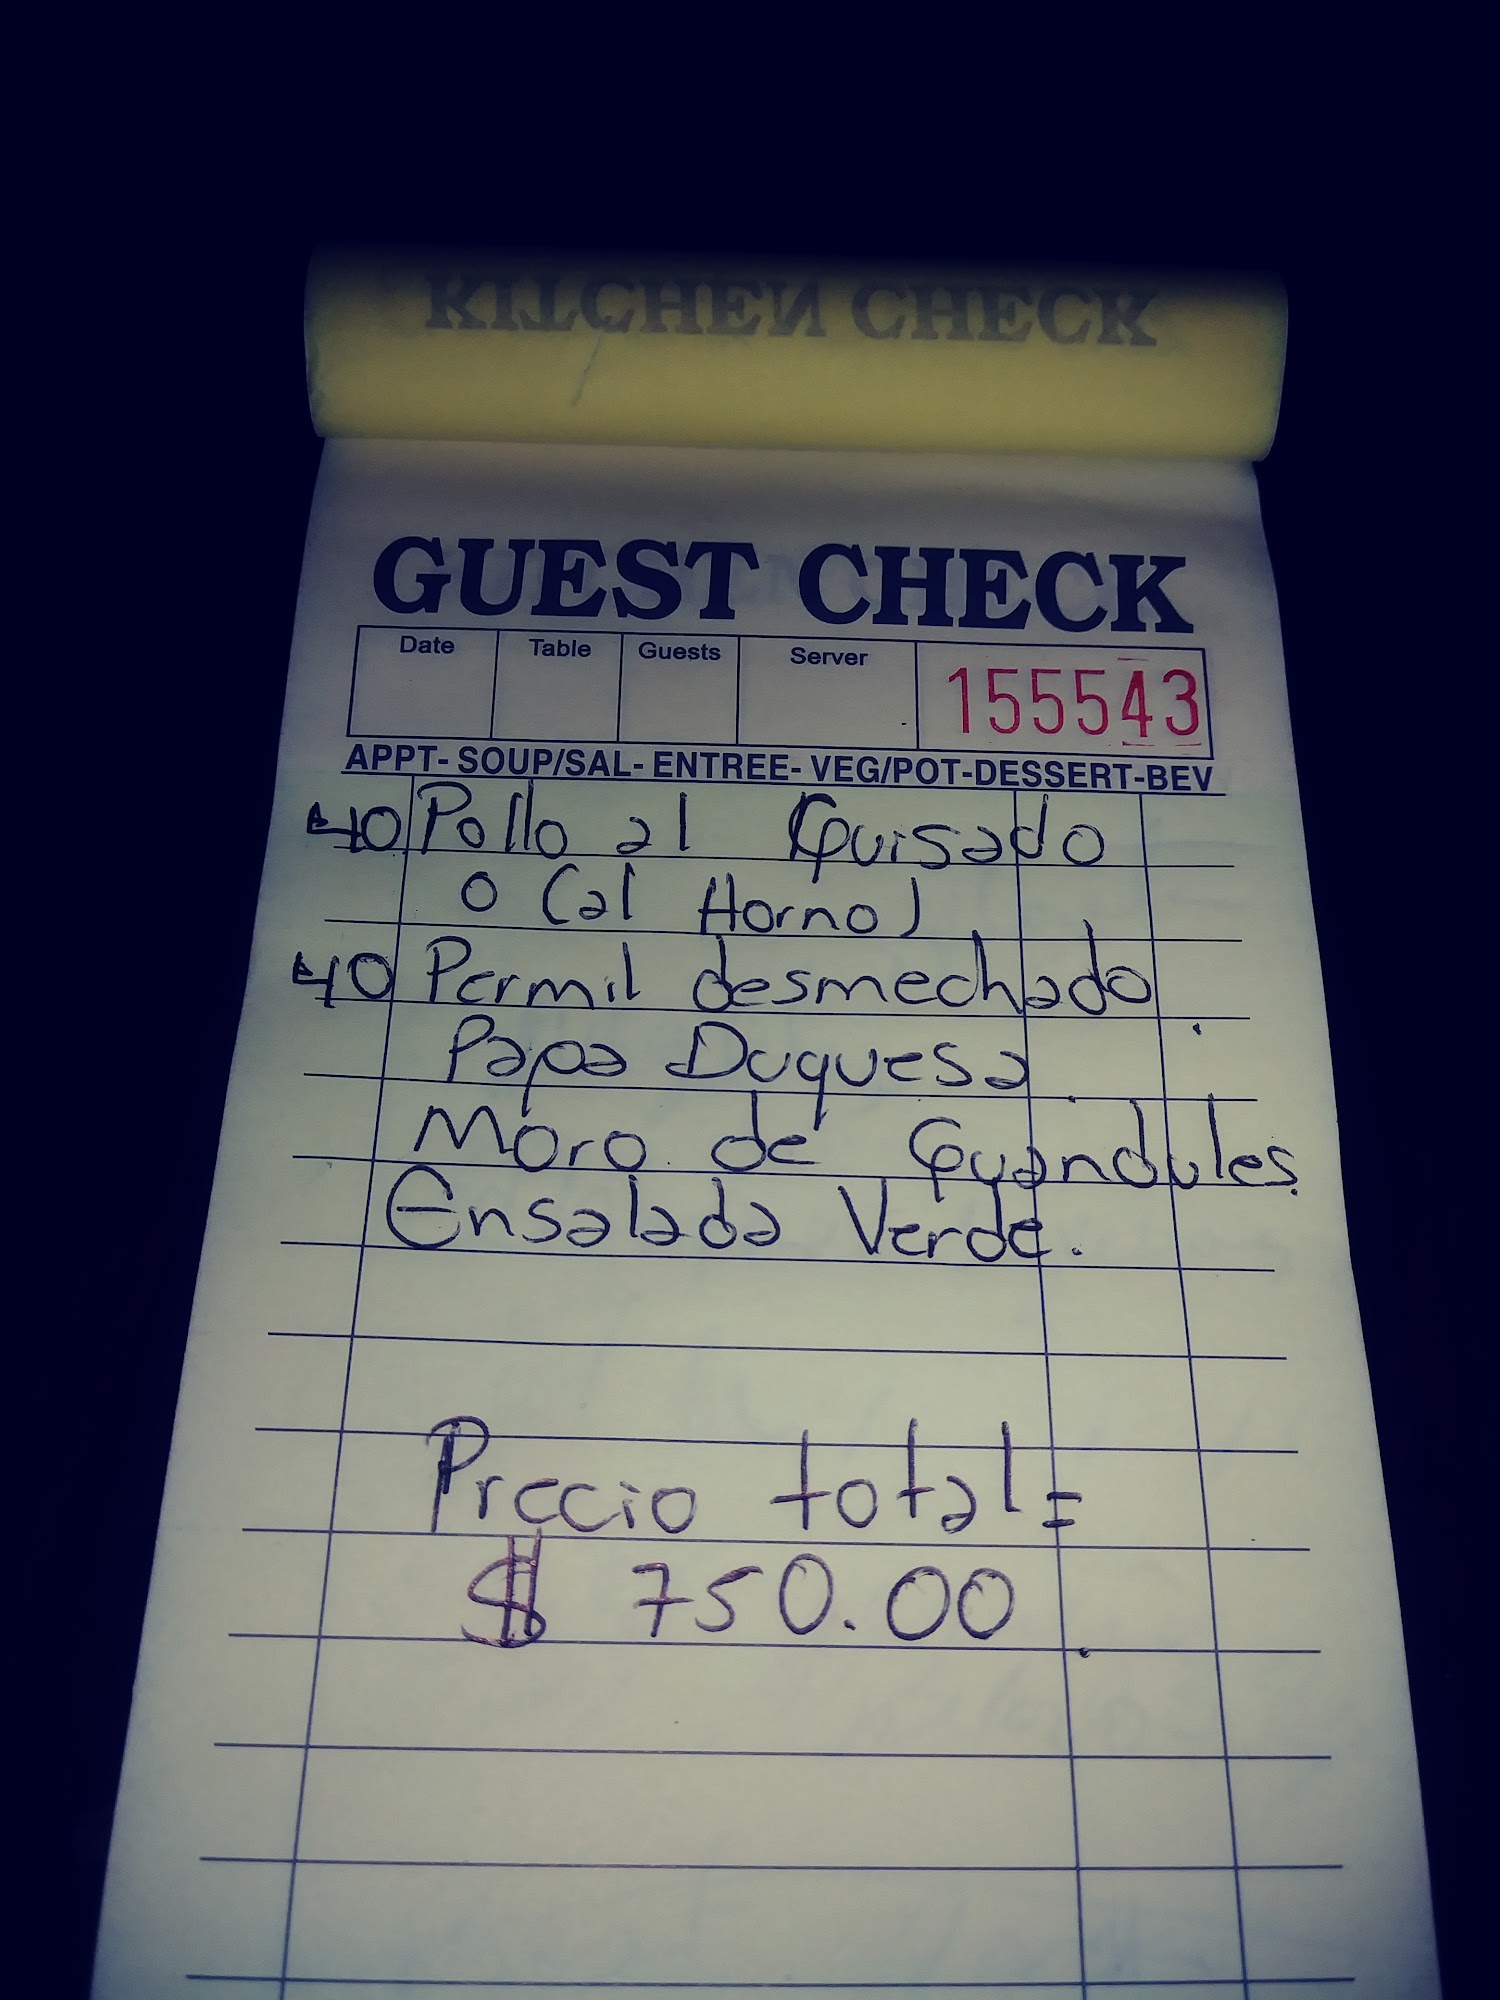 KITCHEN CHECK
GUEST CHECK
Date Table Guests Server 155543
APPT- SOUP/SAL- ENTREE- VEG/POT-DESSERT-BEV
40 Pollo al Guisado
o (al Horno)
40 Permil desmechado
Papa Duquesa
Moro de Guandules
Ensalada Verde.
Precio total=
$ 750.00